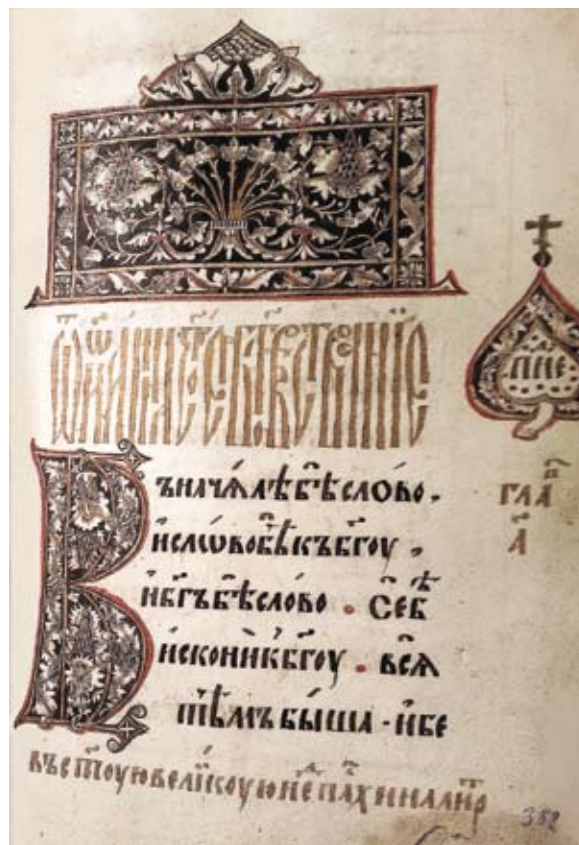 ѿ иѡа́нна ст҃ое бл҃говѣствова́нїе
.пнє.
гла в҃
а҃
Въ нача́лѣ бѣ̀ сло́во .
и҆ сло́во бѣ̀ къ бг҃оу ,
и҆ бг҃ъ бѣ̀ сло́во . Се́ бѣ
и҆сконѝ к бг҃оу . всѧ̑
тѣ́мъ бы́ша · и҆ бе
въ ст҃оую вели́коую нє҃ па́хи на ли҃тр
382